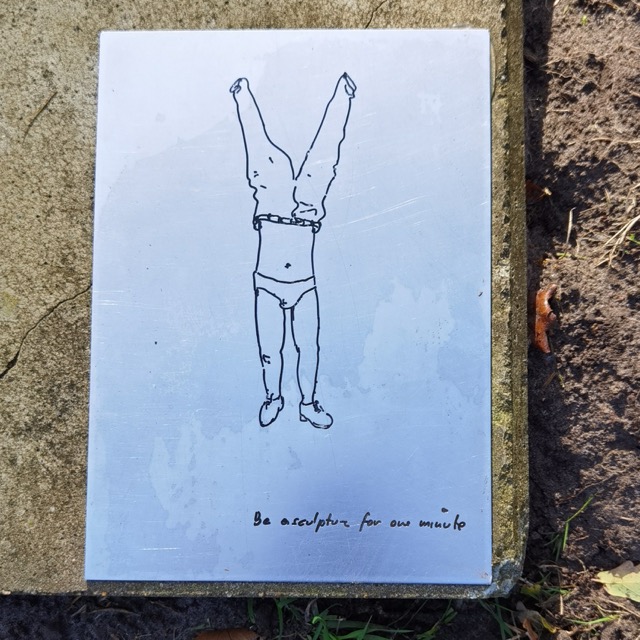 Be a sculpture for one minute